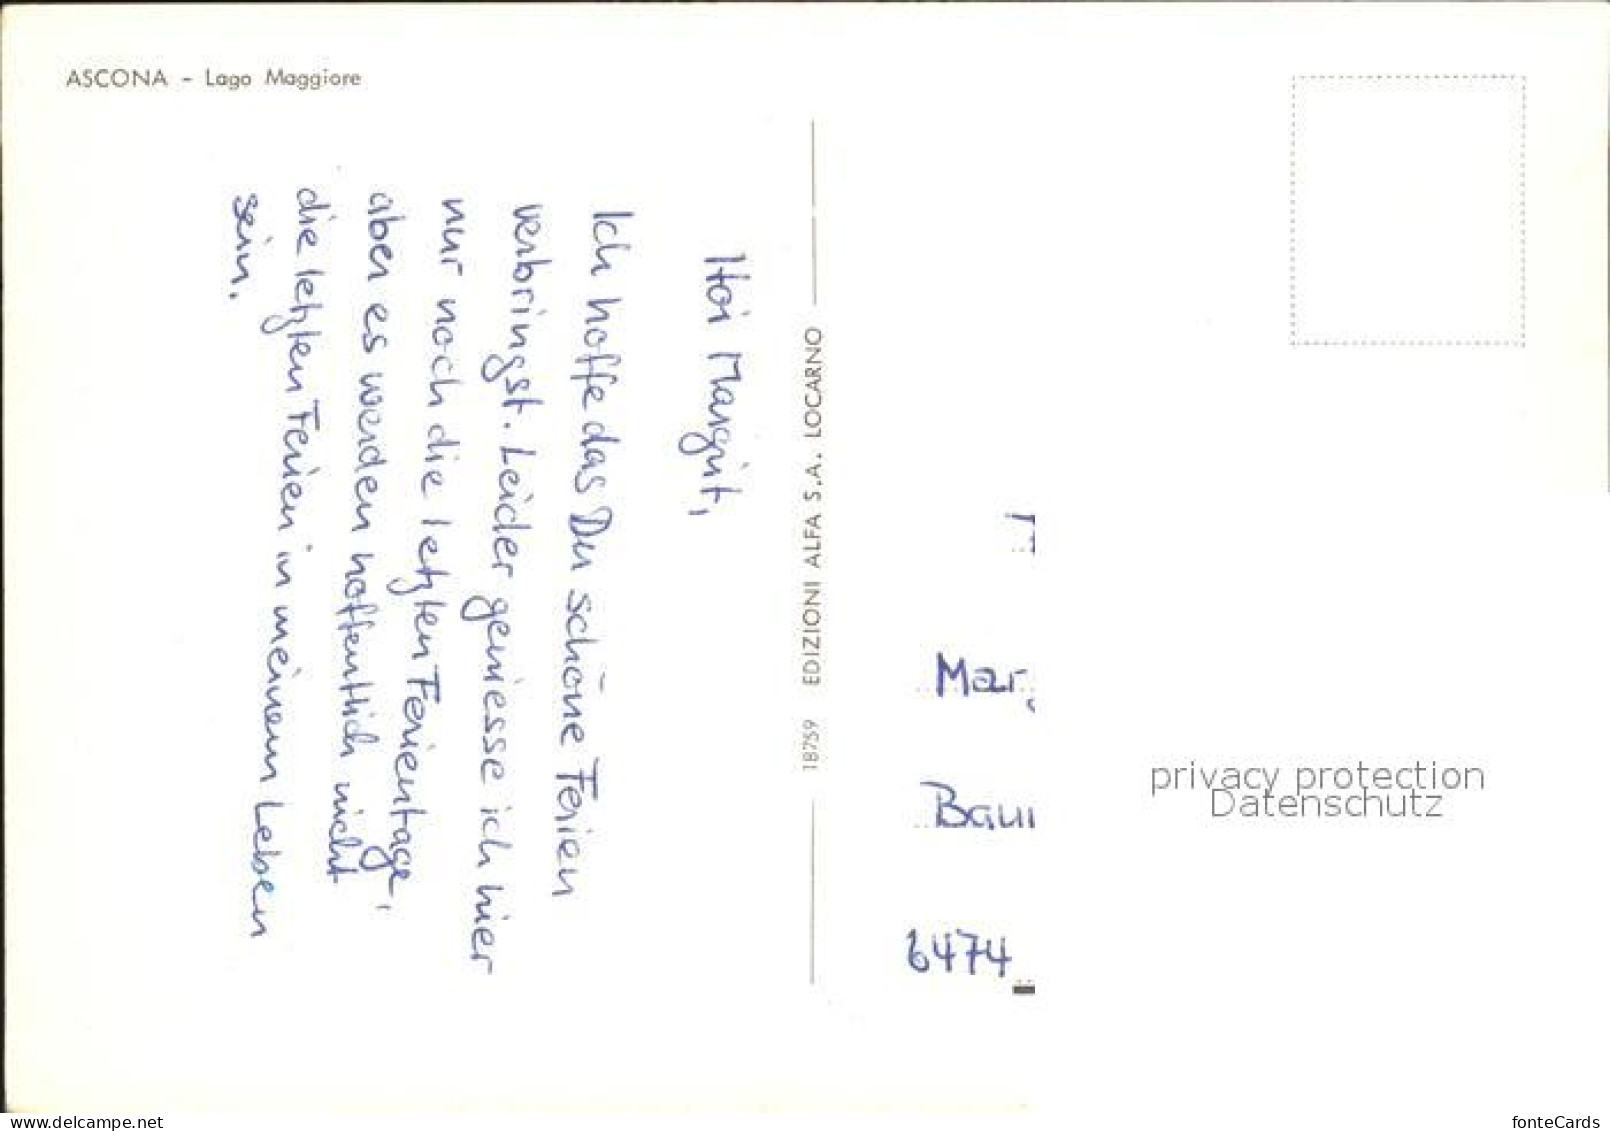 ASCONA - Lago Maggiore
Hoi Margrit,
Ich hoffe das Du schöne Ferien
verbringst. Leider geniesse ich hier
nur noch die letzten Ferientage,
aber es werden hoffentlich nicht
die letzten Ferien in meinem Leben
sein.
18759 EDIZIONI ALFA S.A. LOCARNO
Mar
Bau
6474
privacy protection
Datenschutz
www.delcampe.net
fonteCards